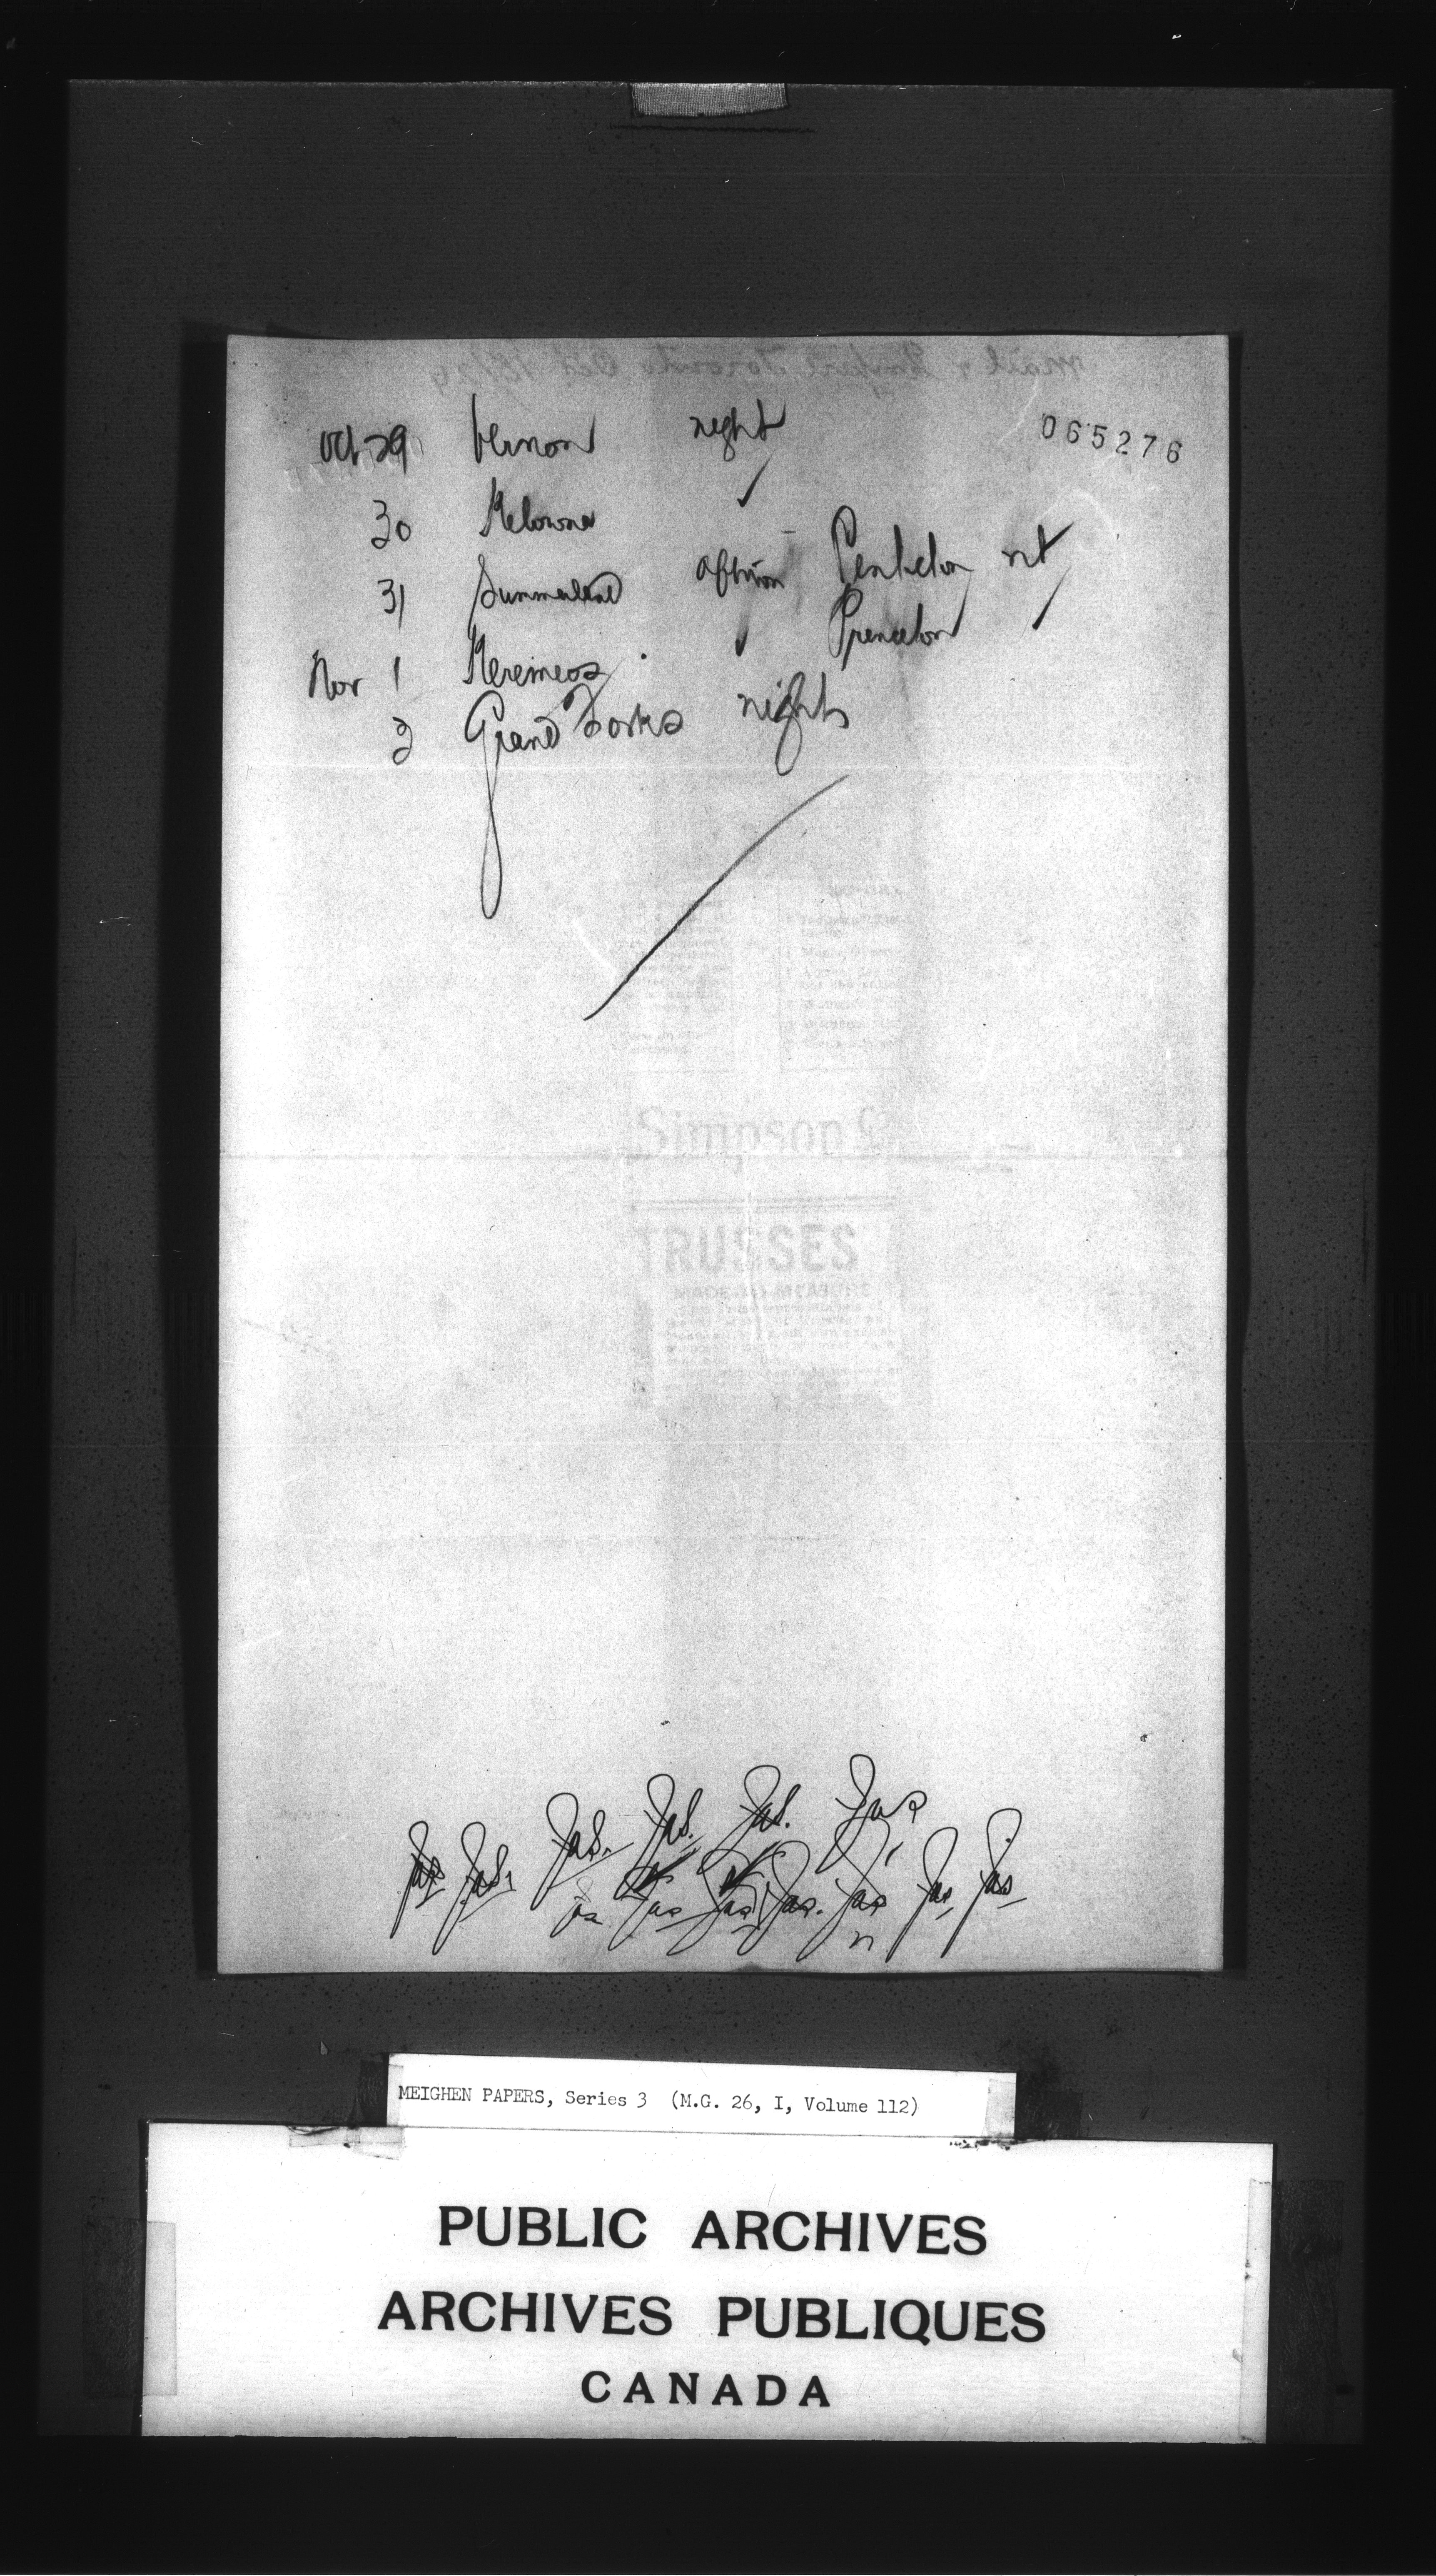 065276
Oct 29 Vernon night
30 Kelowna ✓
31 Summerland aftnoon Penticton nt
Nov 1 Keremeos ✓ Princeton ✓
2 Grand Forks night
Simpson Co
TRUSSES
MADE-TO-MEASURE
Jas. Jas. Jas. Jas
Jas Jas. Jas Jas Jas. Jas Jas. Jas.
MEIGHEN PAPERS, Series 3 (M.G. 26, I, Volume 112)
PUBLIC ARCHIVES
ARCHIVES PUBLIQUES
CANADA